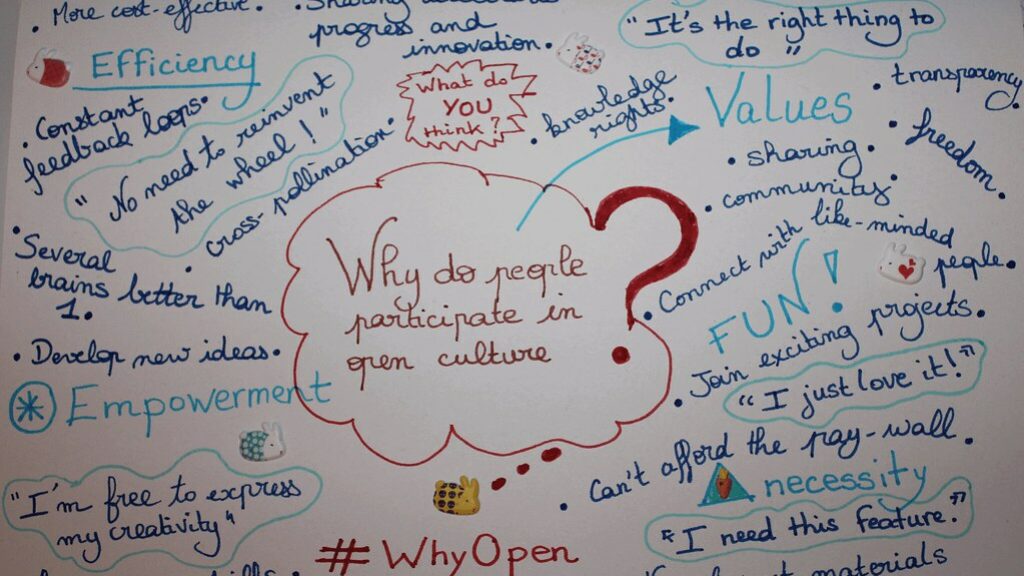 • More cost-effective.
progress and
innovation.
"It's the right thing to
do"
Efficiency
• Constant
feedback loops.
"No need to reinvent
the wheel!"
• cross-pollination.
• Several
brains better than
1.
• Develop new ideas.
What do
YOU
think?
• knowledge
rights.
Values
• transparency
• freedom.
• sharing.
• community.
• Connect with like-minded
people.
Why do people
participate in
open culture
?
FUN!
• Join exciting projects.
"I just love it!"
Empowerment
"I'm free to express
my creativity"
• Can't afford the pay-wall.
necessity
"I need this feature."
#WhyOpen
materials